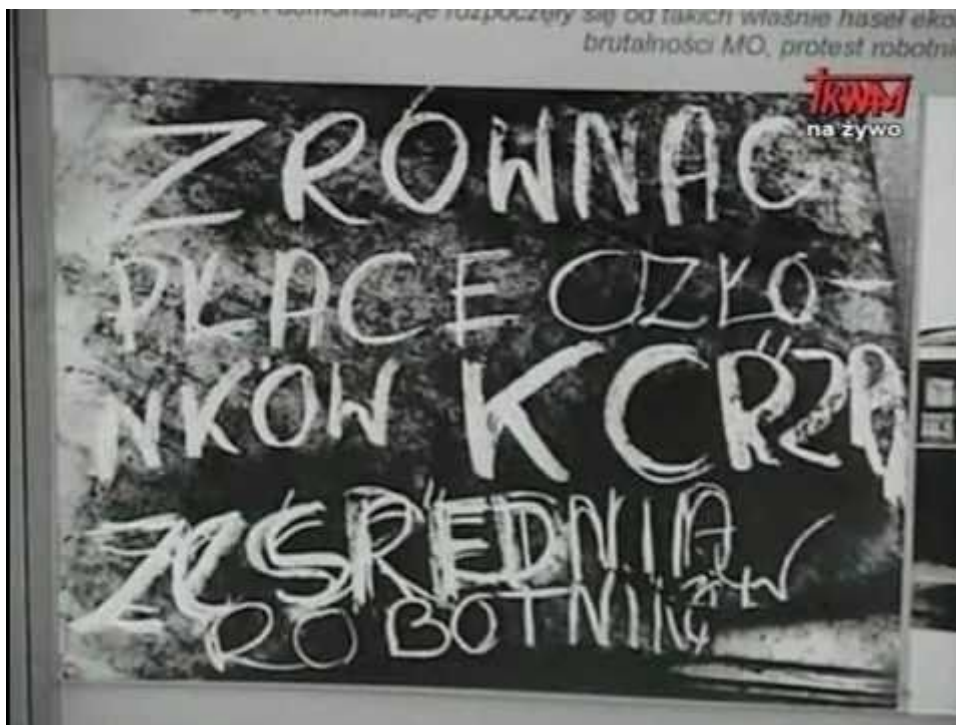 demonstracje rozpoczęły się od takich właśnie haseł eko
brutalności MO, protest robotni
TRWAM
na żywo
ZRÓWNAĆ
PŁACE CZŁO-
NKÓW KC RZĄ
ZE ŚREDNIĄ
ROBOTNIKÓW